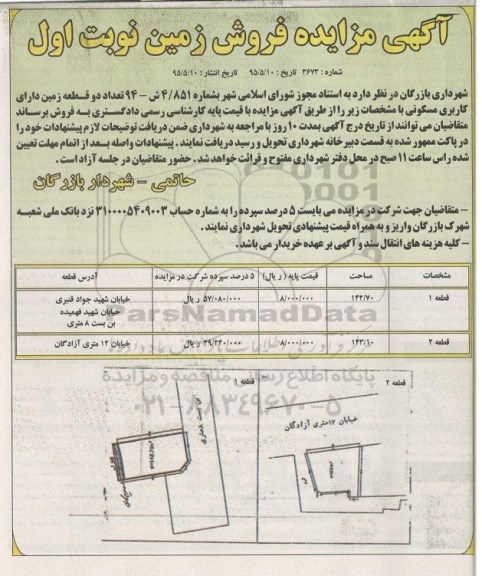 آگهی مزایده فروش زمین نوبت اول
شماره : ۳۶۷۳ تاریخ : ۹۵/۵/۱۰ تاریخ انتشار : ۹۵/۵/۱۰
شهرداری بازرگان در نظر دارد به استناد مجوز شورای اسلامی شهر بشماره ۴/۸۵۱ ش - ۹۴ تعداد دو قطعه زمین دارای
کاربری مسکونی با مشخصات زیر را از طریق آگهی مزایده با قیمت پایه کارشناسی رسمی دادگستری به فروش برساند
متقاضیان می توانند از تاریخ درج آگهی بمدت ۱۰ روز با مراجعه به شهرداری ضمن دریافت توضیحات لازم پیشنهادات خود را
در پاکت ممهور شده به قسمت دبیرخانه شهرداری تحویل و رسید دریافت نمایند. پیشنهادات واصله بعد از اتمام مهلت تعیین
شده راس ساعت ۱۱ صبح در محل دفتر شهرداری مفتوح و قرائت خواهد شد. حضور متقاضیان در جلسه آزاد است.
حاتمی - شهردار بازرگان
- متقاضیان جهت شرکت در مزایده می بایست ۵ درصد سپرده را به شماره حساب ۳۱۰۰۰۰۵۴۰۹۰۰۳ نزد بانک ملی شعبه
شهرک بازرگان واریز و به همراه قیمت پیشنهادی تحویل شهرداری نمایند.
- کلیه هزینه های انتقال سند و آگهی بر عهده خریدار می باشد.
مشخصات مساحت قیمت پایه (ریال) ۵ درصد سپرده شرکت در مزایده آدرس قطعه
قطعه ۱ ۱۴۲/۷۰ ۸/۰۰۰/۰۰۰ ۵۷/۰۸۰/۰۰۰ ریال خیابان شهید جواد قنبری
خیابان شهید فهمیده
بن بست ۸ متری
قطعه ۲ ۱۴۳/۱۰ ۸/۰۰۰/۰۰۰ ۳۹/۲۴۰/۰۰۰ ریال خیابان ۱۲ متری آزادگان
ParsNamadData
پایگاه اطلاع رسانی مناقصه و مزایده
۰۲۱-۸۸۳۴۹۶۷۰-۵
قطعه ۲
قطعه ۱
خیابان ۱۲ متری آزادگان
بن بست ۸ متری